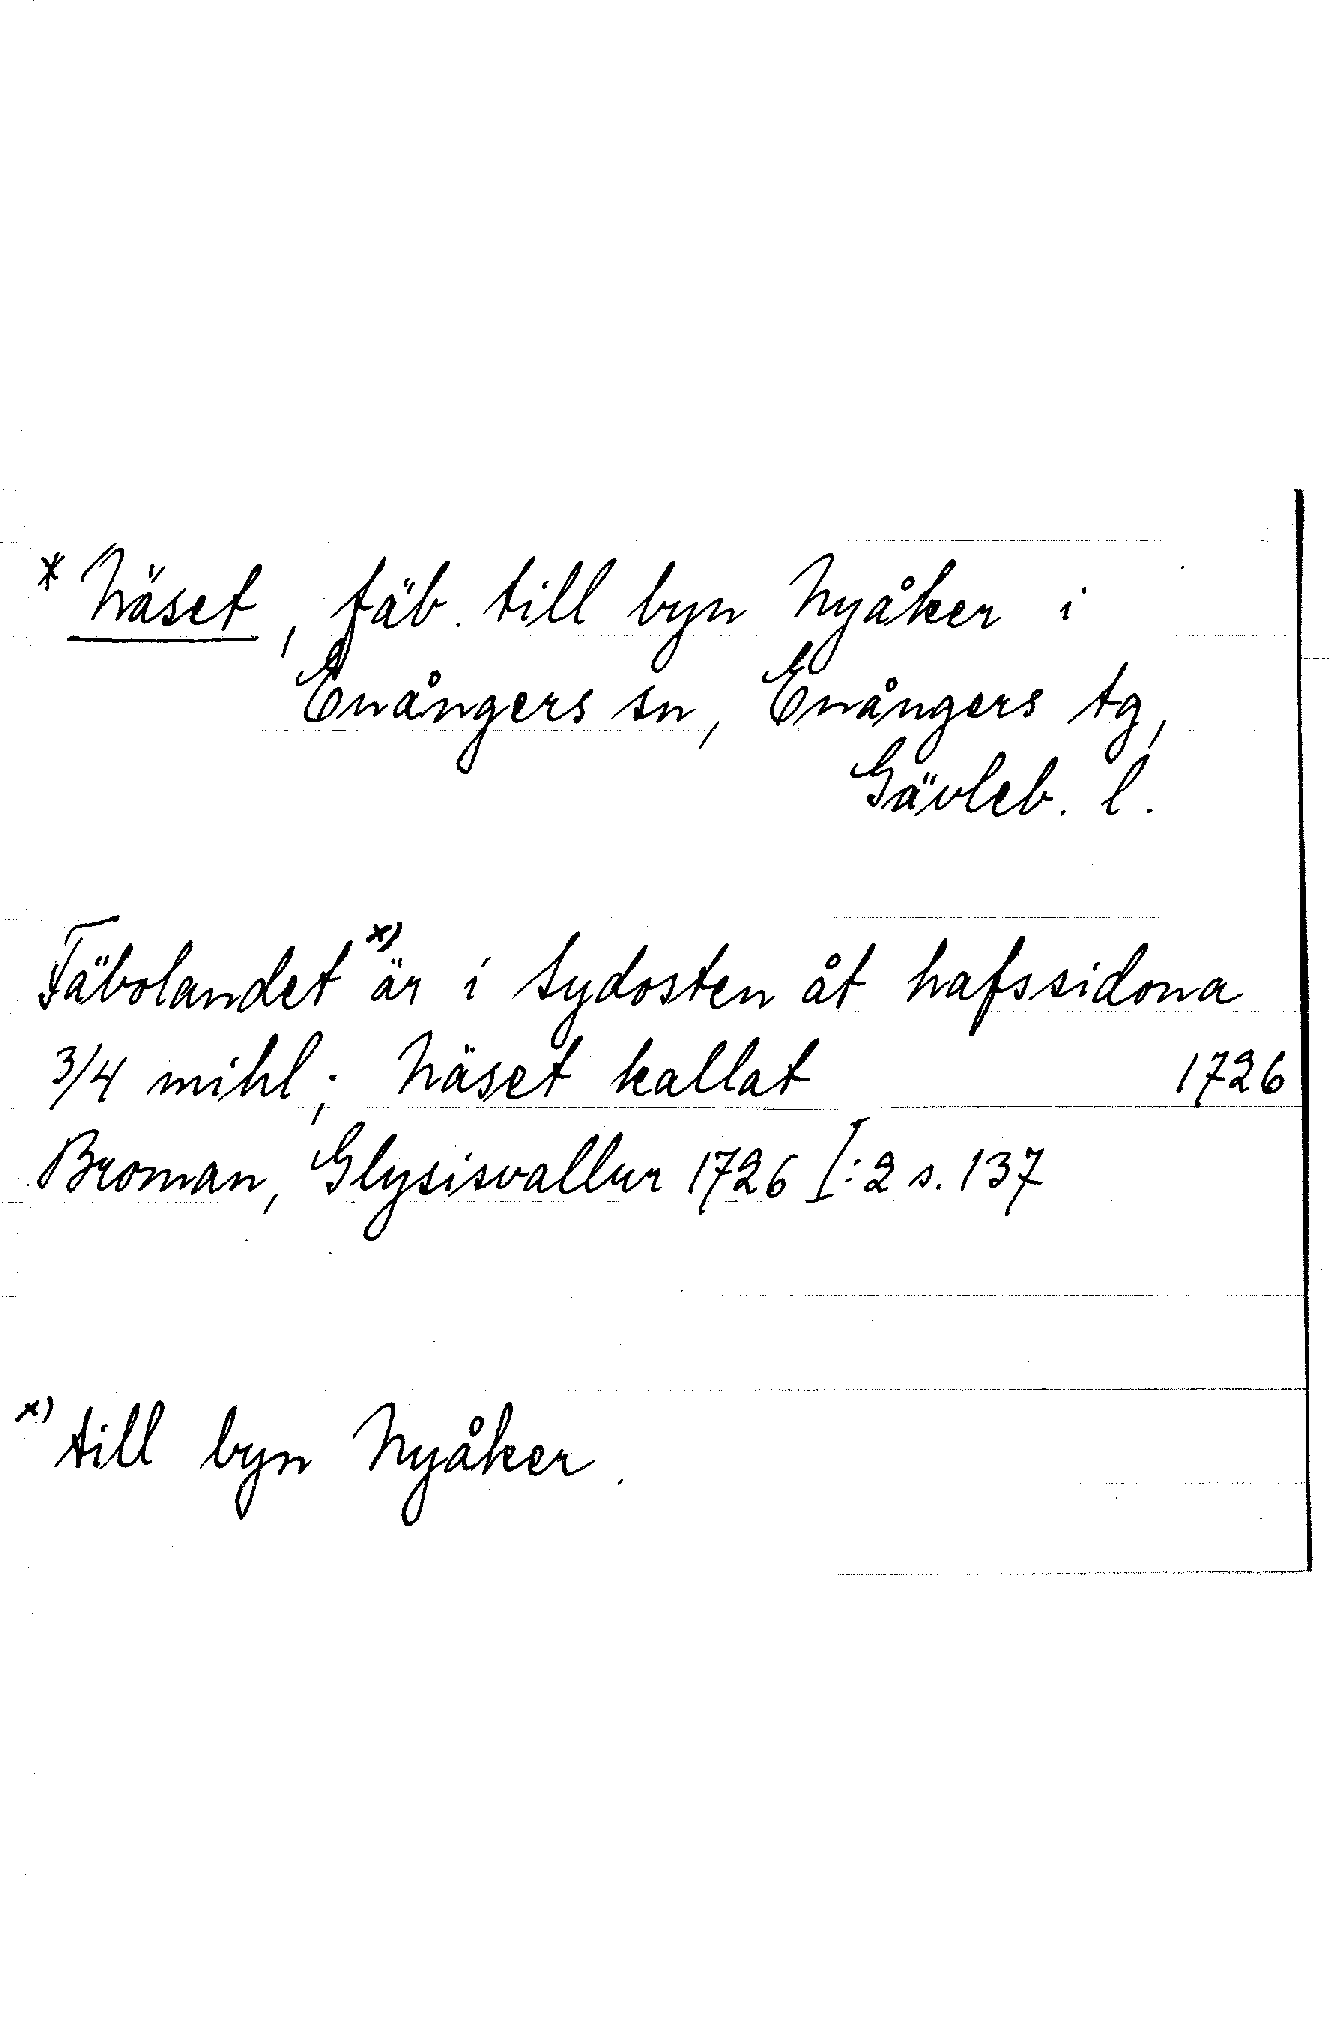 * Näset, fäb. till byn Nyåker i
Enångers sn, Enångers tg,
Gävleb. l.
Fäbolandet x) är i sydosten åt hafssidona
3/4 mihl; Näset kallat 1726
Broman, Glysisvallur 1726 I:2 s. 137
x) till byn Nyåker.